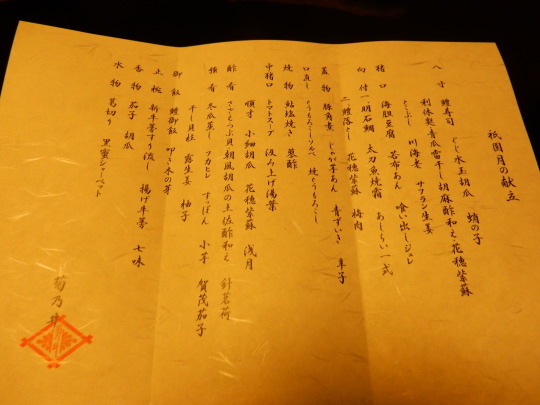 祇園月の献立
八寸 鱧寿司 とし水玉胡瓜 蛸の子
利休麩青瓜雷干し胡麻酢和え・花穂紫蘇
とこぶし 川海老 サフラン生姜
猪口 海胆豆腐 若布あん 喰い出しジュレ
向付 一 明石鯛 太刀魚焼霜 あしらい一式
二 鱧落とし 花穂紫蘇 梅肉
蓋物 豚角煮 じゃが芋あん 青ずいき 辛子
口直し とうもろこしソルベ 焼とうもろこし
焼物 鮎塩焼き 蓼酢
中猪口 トマトスープ 汲み上げ湯葉
酢肴 順才 小細胡瓜 花穂紫蘇 浅月
さざとつぶ貝 朝風胡瓜の土佐酢和え 針茗荷
強肴 冬瓜蒸し フカヒレ すっぽん 小芋 賀茂茄子
干し貝柱 露生姜 柚子
御飯 鱧御飯 叩き木の芽
止椀 新牛蒡すり流し 揚げ牛蒡 七味
香物 茄子 胡瓜
水物 葛切り 黒蜜シャーベット
菊乃井